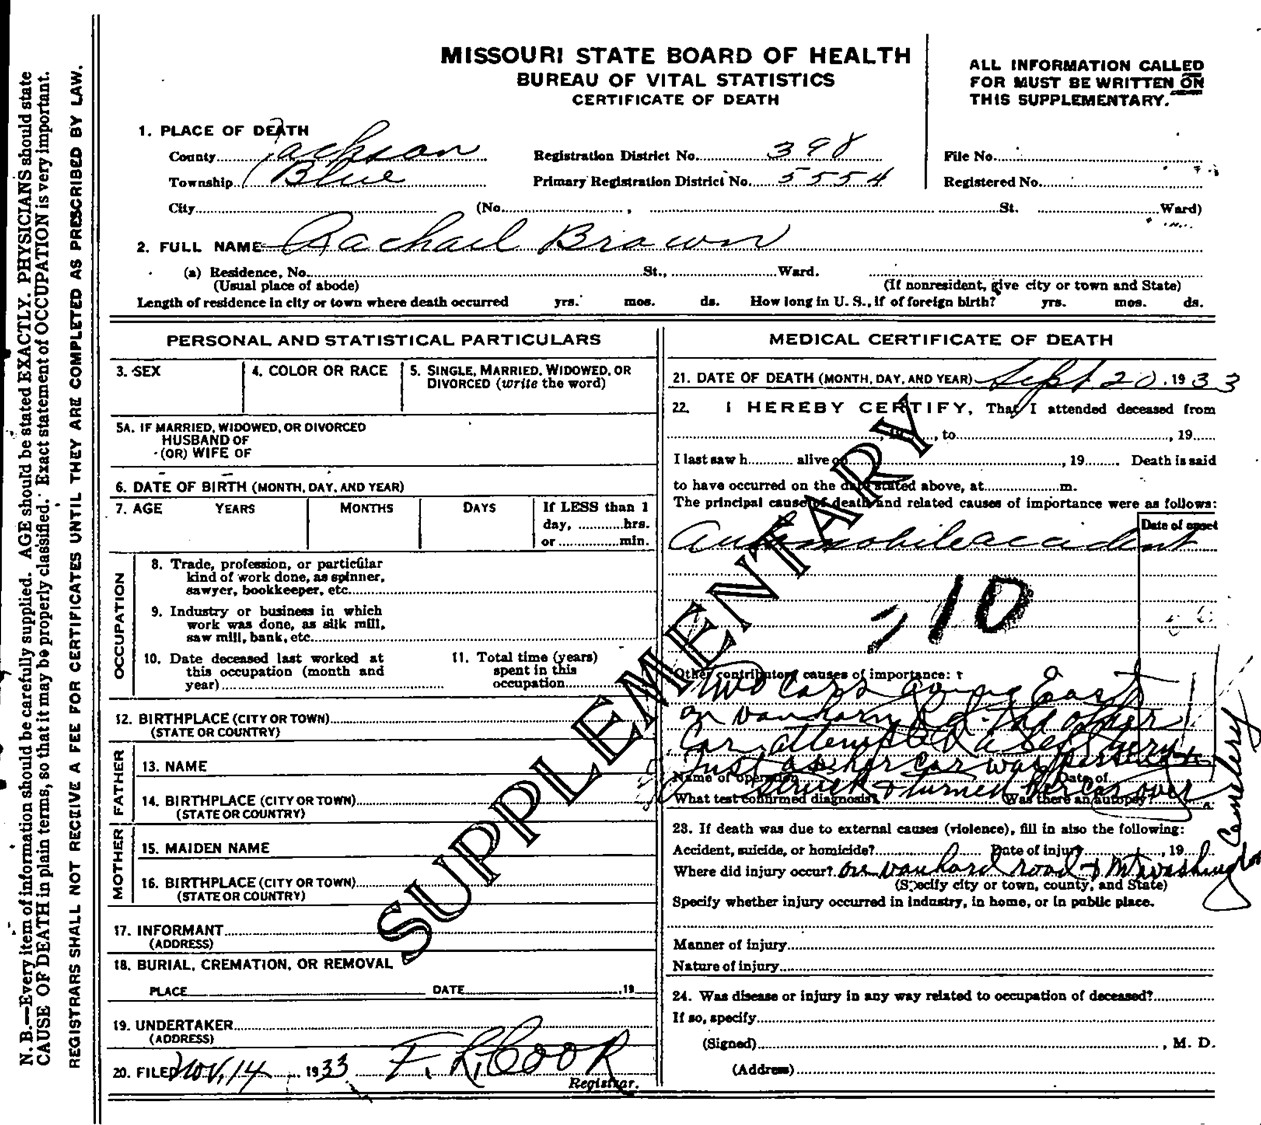 MISSOURI STATE BOARD OF HEALTH
BUREAU OF VITAL STATISTICS
CERTIFICATE OF DEATH
ALL INFORMATION CALLED
FOR MUST BE WRITTEN ON
THIS SUPPLEMENTARY.
1. PLACE OF DEATH
County Jackson Registration District No. 398 File No.
Township Blue Primary Registration District No. 5554 Registered No.
City (No. , St. Ward)
2. FULL NAME Rachael Brown
(a) Residence, No. St., Ward.
(Usual place of abode) (If nonresident, give city or town and State)
Length of residence in city or town where death occurred yrs. mos. ds. How long in U. S., if of foreign birth? yrs. mos. ds.
PERSONAL AND STATISTICAL PARTICULARS
3. SEX 4. COLOR OR RACE 5. SINGLE, MARRIED, WIDOWED, OR
DIVORCED (write the word)
5A. IF MARRIED, WIDOWED, OR DIVORCED
HUSBAND OF
(OR) WIFE OF
6. DATE OF BIRTH (MONTH, DAY, AND YEAR)
7. AGE YEARS MONTHS DAYS If LESS than 1
day, hrs.
or min.
OCCUPATION
8. Trade, profession, or particular
kind of work done, as spinner,
sawyer, bookkeeper, etc.
9. Industry or business in which
work was done, as silk mill,
saw mill, bank, etc.
10. Date deceased last worked at
this occupation (month and
year)
11. Total time (years)
spent in this
occupation
12. BIRTHPLACE (CITY OR TOWN)
(STATE OR COUNTRY)
FATHER
13. NAME
14. BIRTHPLACE (CITY OR TOWN)
(STATE OR COUNTRY)
MOTHER
15. MAIDEN NAME
16. BIRTHPLACE (CITY OR TOWN)
(STATE OR COUNTRY)
17. INFORMANT
(ADDRESS)
18. BURIAL, CREMATION, OR REMOVAL
PLACE DATE , 19
19. UNDERTAKER
(ADDRESS)
20. FILED Nov. 14 , 1933 F. L. Cook
Registrar.
MEDICAL CERTIFICATE OF DEATH
21. DATE OF DEATH (MONTH, DAY, AND YEAR) Sept 20, 1933
22. I HEREBY CERTIFY, That I attended deceased from
, 19 , to , 19
I last saw h alive on , 19 Death is said
to have occurred on the date stated above, at m.
The principal cause of death and related causes of importance were as follows:
Date of onset
Automobile accident
210
Other contributory causes of importance:
Two cars going East
on vanhorn Rd. the other
Car attempted a left turn
Just as her car was passing
struck & turned her car over
Name of operation Date of
What test confirmed diagnosis? Was there an autopsy?
23. If death was due to external causes (violence), fill in also the following:
Accident, suicide, or homicide? Date of injury , 19
Where did injury occur? on vanhorn road & Mt washington
Cemetery
(Specify city or town, county, and State)
Specify whether injury occurred in industry, in home, or in public place.
Manner of injury
Nature of injury
24. Was disease or injury in any way related to occupation of deceased?
If so, specify
(Signed) , M. D.
(Address)
SUPPLEMENTARY
N. B.—Every item of information should be carefully supplied. AGE should be stated EXACTLY. PHYSICIANS should state
CAUSE OF DEATH in plain terms, so that it may be properly classified. Exact statement of OCCUPATION is very important.
REGISTRARS SHALL NOT RECEIVE A FEE FOR CERTIFICATES UNTIL THEY ARE COMPLETED AS PRESCRIBED BY LAW.